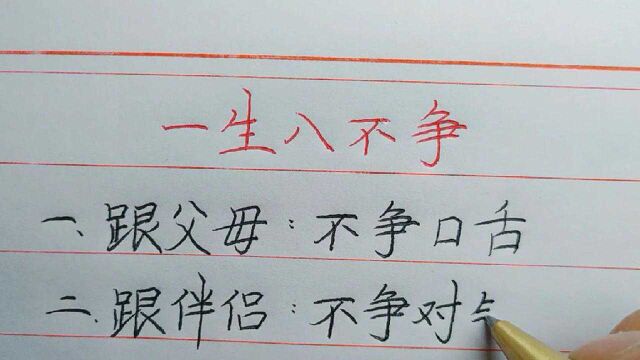 一生八不争
一、跟父母:不争口舌
二、跟伴侣:不争对